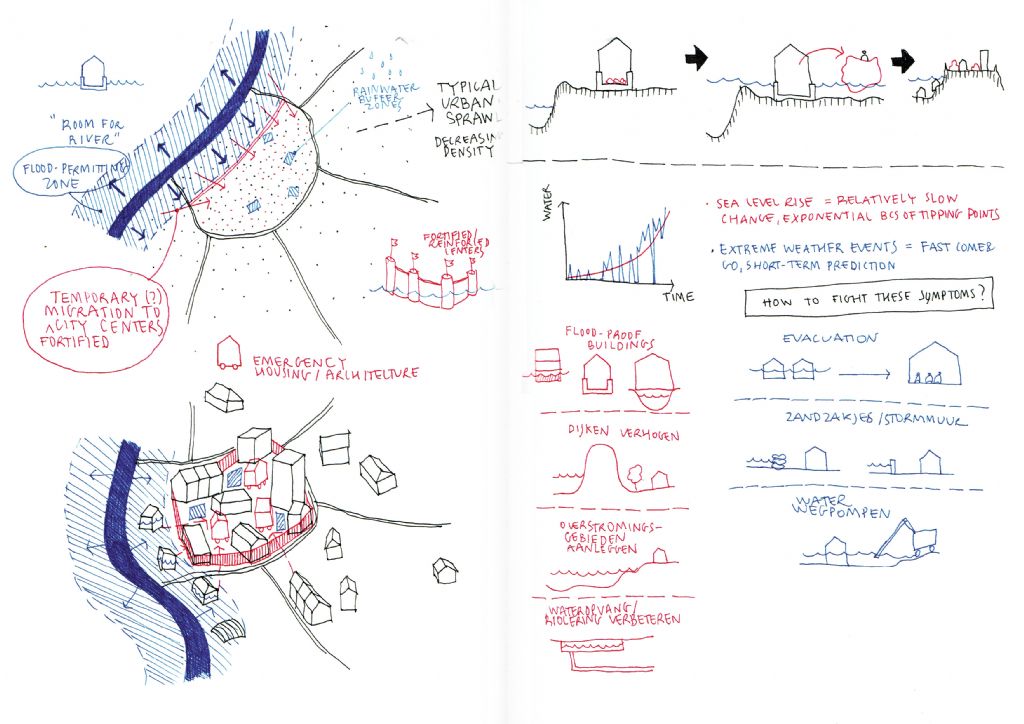 "ROOM FOR
RIVER"
FLOOD-PERMITTING
ZONE
RAINWATER
BUFFER
ZONES
TYPICAL
URBAN
SPRAWL
DECREASING
DENSITY
FORTIFIED/
REINFORCED
CENTERS
TEMPORARY (?)
MIGRATION TO
^CITY CENTERS
FORTIFIED
EMERGENCY
HOUSING/ARCHITECTURE
WATER
TIME
• SEA LEVEL RISE = RELATIVELY SLOW
CHANGE, EXPONENTIAL BCS OF TIPPING POINTS
• EXTREME WEATHER EVENTS = FAST COME &
GO, SHORT-TERM PREDICTION
HOW TO FIGHT THESE SYMPTOMS?
FLOOD-PROOF
BUILDINGS
DIJKEN VERHOGEN
OVERSTROMINGS-
GEBIEDEN
AANLEGGEN
WATEROPVANG/
RIOLERING VERBETEREN
EVACUATION
ZANDZAKJES/STORMMUUR
WATER
WEGPOMPEN